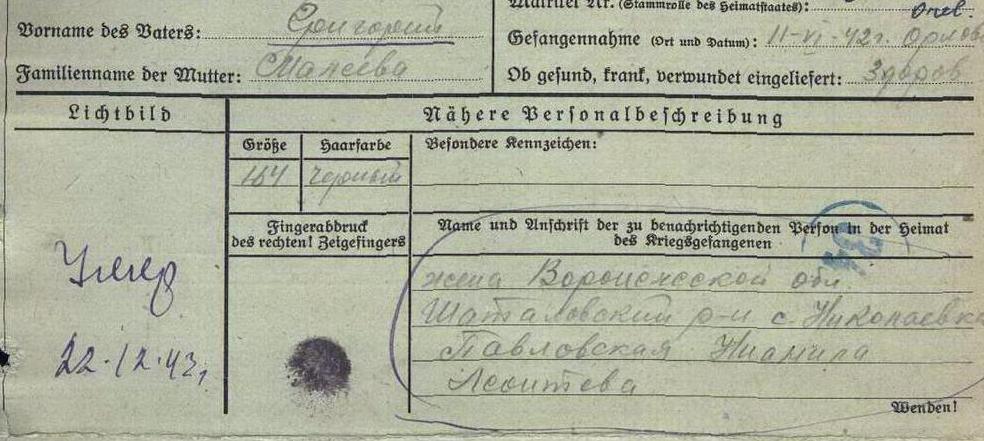 Matrikel Nr. (Stammrolle des Heimatstaates):
Vorname des Vaters: Григорий
Gefangennahme (Ort und Datum): 11-VI-42г.
Familienname der Mutter:
Ob gesund, krank, verwundet eingeliefert: Здоров
Lichtbild
Nähere Personalbeschreibung
Größe
Haarfarbe
Besondere Kennzeichen:
164
черный
Fingerabdruck
des rechten! Zeigefingers
Name und Anschrift der zu benachrichtigenden Person in der Heimat
des Kriegsgefangenen
жена Воронежской обл.
Шаталовский р-н с. Николаевка
Павловская
Леонтева
Умер
22.12.43г
Wenden!